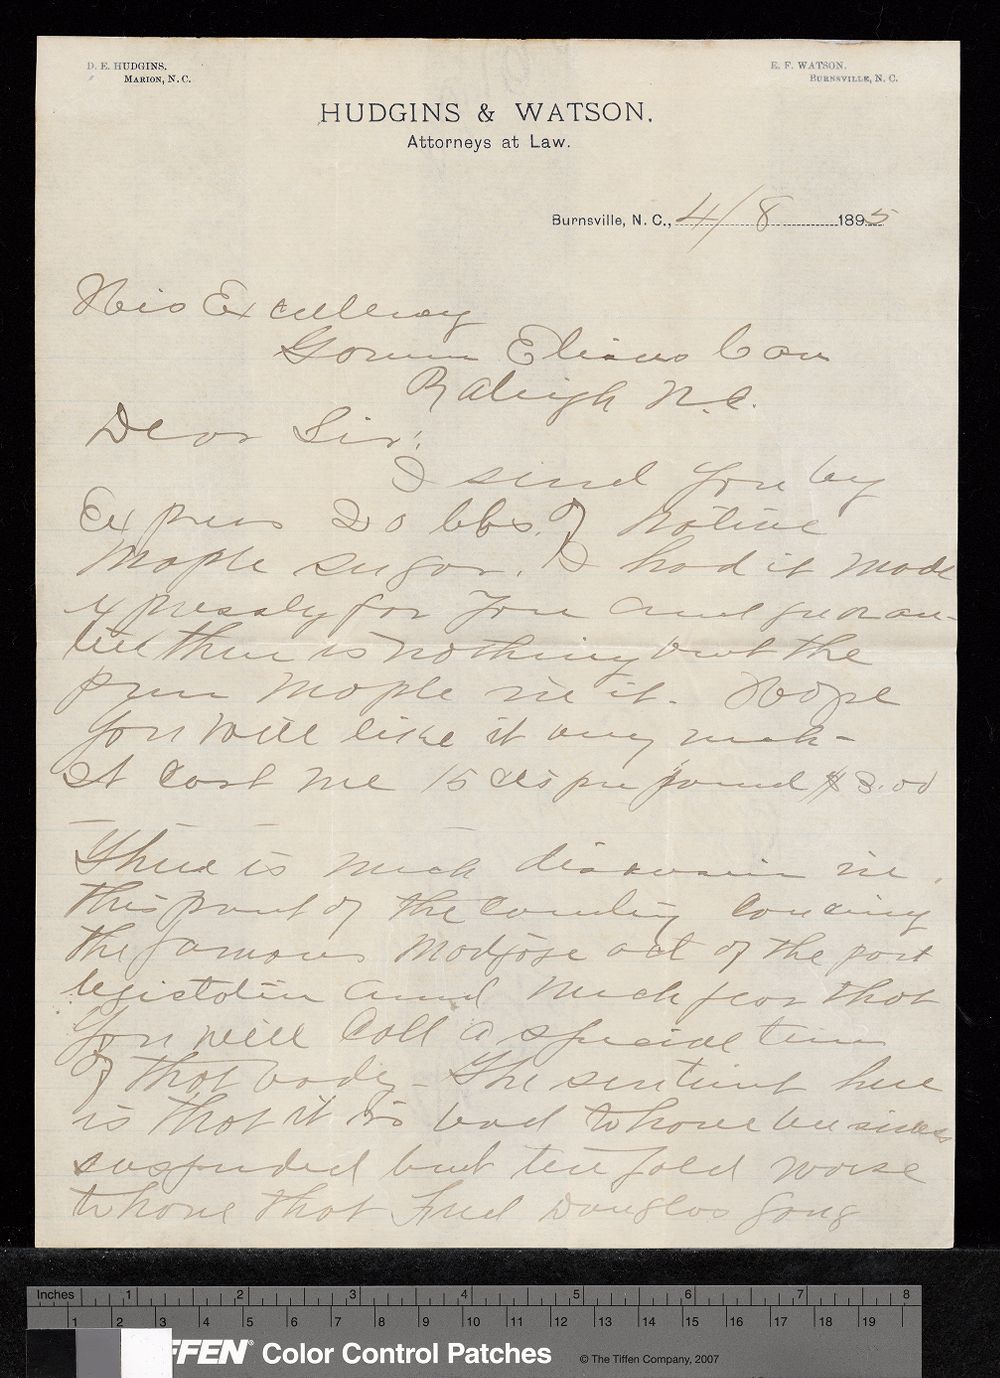 D. E. HUDGINS.
MARION, N. C.
E. F. WATSON.
BURNSVILLE, N. C.
HUDGINS & WATSON.
Attorneys at Law.
Burnsville, N. C., 4/8 1895
His Excellency
Governor Elias Carr
Raleigh N.C.
Dear Sir:
I send you by
Express 20 lbs. of native
Maple sugar. I had it made
expressly for you and guaran-
tee there is nothing but the
pure maple in it. Hope
you will like it very much-
It cost me 15 cts per pound $3.00
There is much discussion in
this part of the country
the famous Mortgage act of the past
legislature and much fear that
you will call a special term
of that body - The sentiment here
is that it is bad to have business
suspended but ten fold worse
to have that Fred Douglas gang
Inches 1 2 3 4 5 6 7 8
1 2 3 4 5 6 7 8 9 10 11 12 13 14 15 16 17 18 19
FFEN® Color Control Patches © The Tiffen Company, 2007